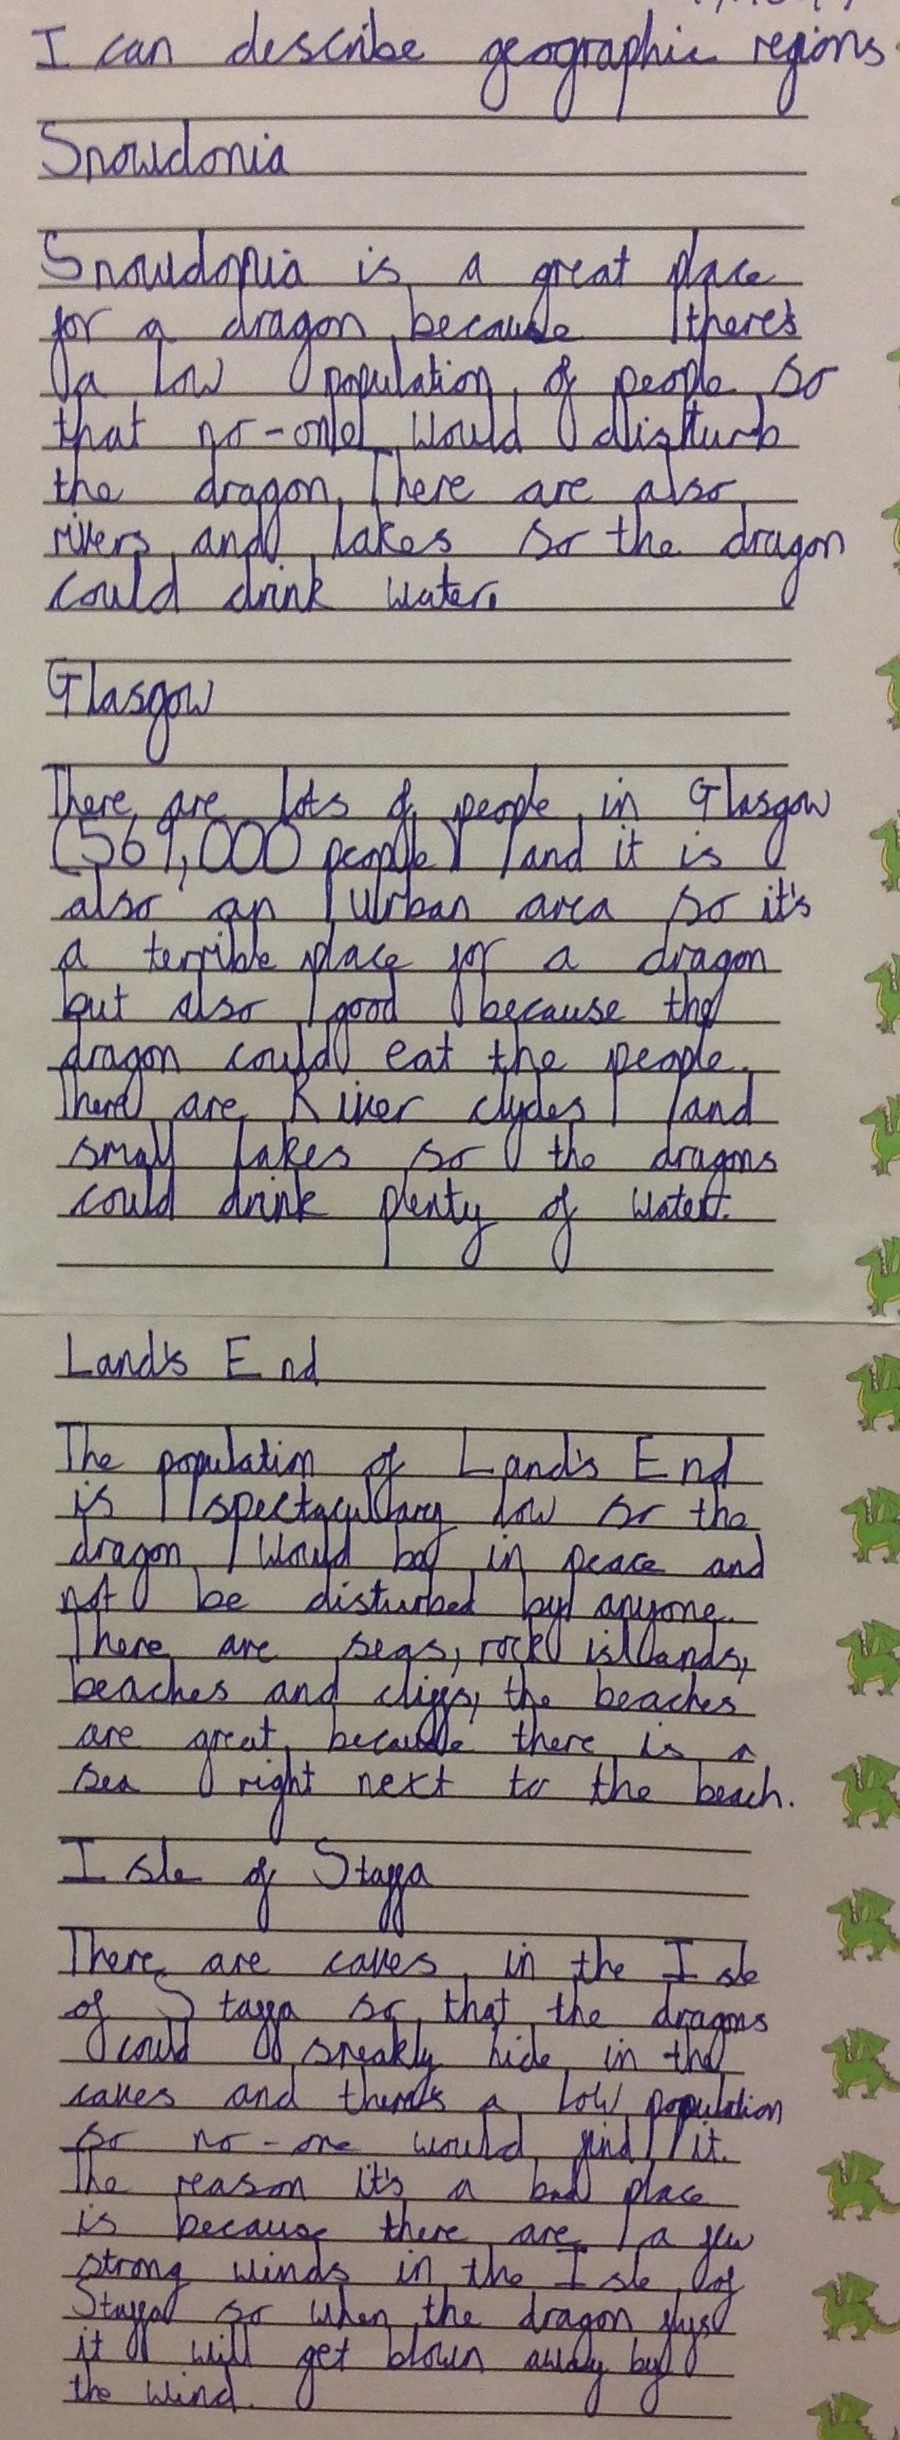 I can describe geographic regions
Snowdonia
Snowdonia is a great place
for a dragon because there's
a low population of people so
that no-one would disturb
the dragon. There are also
rivers and lakes so the dragon
could drink water.
Glasgow
There are lots of people in Glasgow
(569,000 people) and it is
also an urban area so it's
a terrible place for a dragon
but also good because the
dragon could eat the people.
There are River clydes and
small lakes so the dragons
could drink plenty of water.
Land's End
The population of Land's End
is spectacullary low so the
dragon would be in peace and
not be disturbed by anyone.
There are seas, rock isllands,
beaches and cliffs, the beaches
are great because there is a
sea right next to the beach.
Isle of Staffa
There are caves in the Isle
of Staffa so that the dragons
could sneakly hide in the
caves and there's a low population
so no-one would find it.
The reason it's a bad place
is because there are a few
strong winds in the Isle of
Staffa so when the dragon flys
it will get blown away by
the wind.